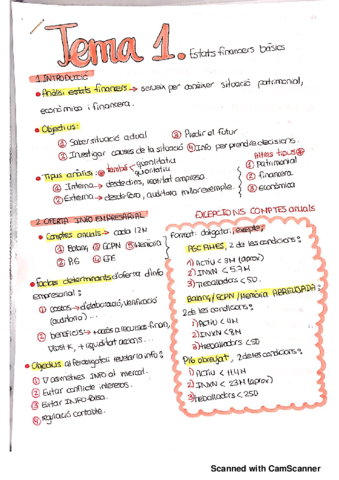 Tema 1. Estats financers bàsics
1. INTRODUCCIÓ
• Anàlisi estats financers → serveix per conèixer situació patrimonial,
econòmica i financera.
• Objectius:
① Saber situació actual ③ Predir el futur
② Investigar causes de la situació ④ Info per prendre decisions.
• Tipus anàlisi: també quantitatiu
qualitatiu
① Interna → desde dins, realitat empresa.
② Externa → desde fora, auditoria millor exemple.
Altres tipus
① Patrimonial
② financera
③ econòmica
2. OFERTA INFO EMPRESARIAL
• Comptes anuals → cada 12M
① Balanç ④ ECPN ⑤ Memòria
② PiG ④ EFE
• Factors determinants d'oferta d'info
empresarial:
① costos → d'elaboració, verificació
(auditoria)...
② beneficis → + accés a recursos finan,
+ liquiditat accions...
• Objectius al revelar la info:
① ↓ asimetries INFO al mercat.
② Evitar conflicte interessos.
③ Evitar INFO falsa.
④ regulació comptable.
EXCEPCIONS COMPTES ANUALS
Format: obligatori, excepte:
PGC PIMES, 2 de les condicions:
1) ACTIU < (aprox)
2) INXN < 5.7M
3) Treballadors < 50.
Balanç/ECPN/Memòria ABREUJADA:
2 de les condicions:
1) ACTIU < 4M
2) INXN < 8M
3) Treballadors < 50
PiG abreujat, 2 de les condicions:
1) ACTIU < 11.4M
2) INXN < 23M (aprox)
3) Treballadors < 250
Scanned with CamScanner